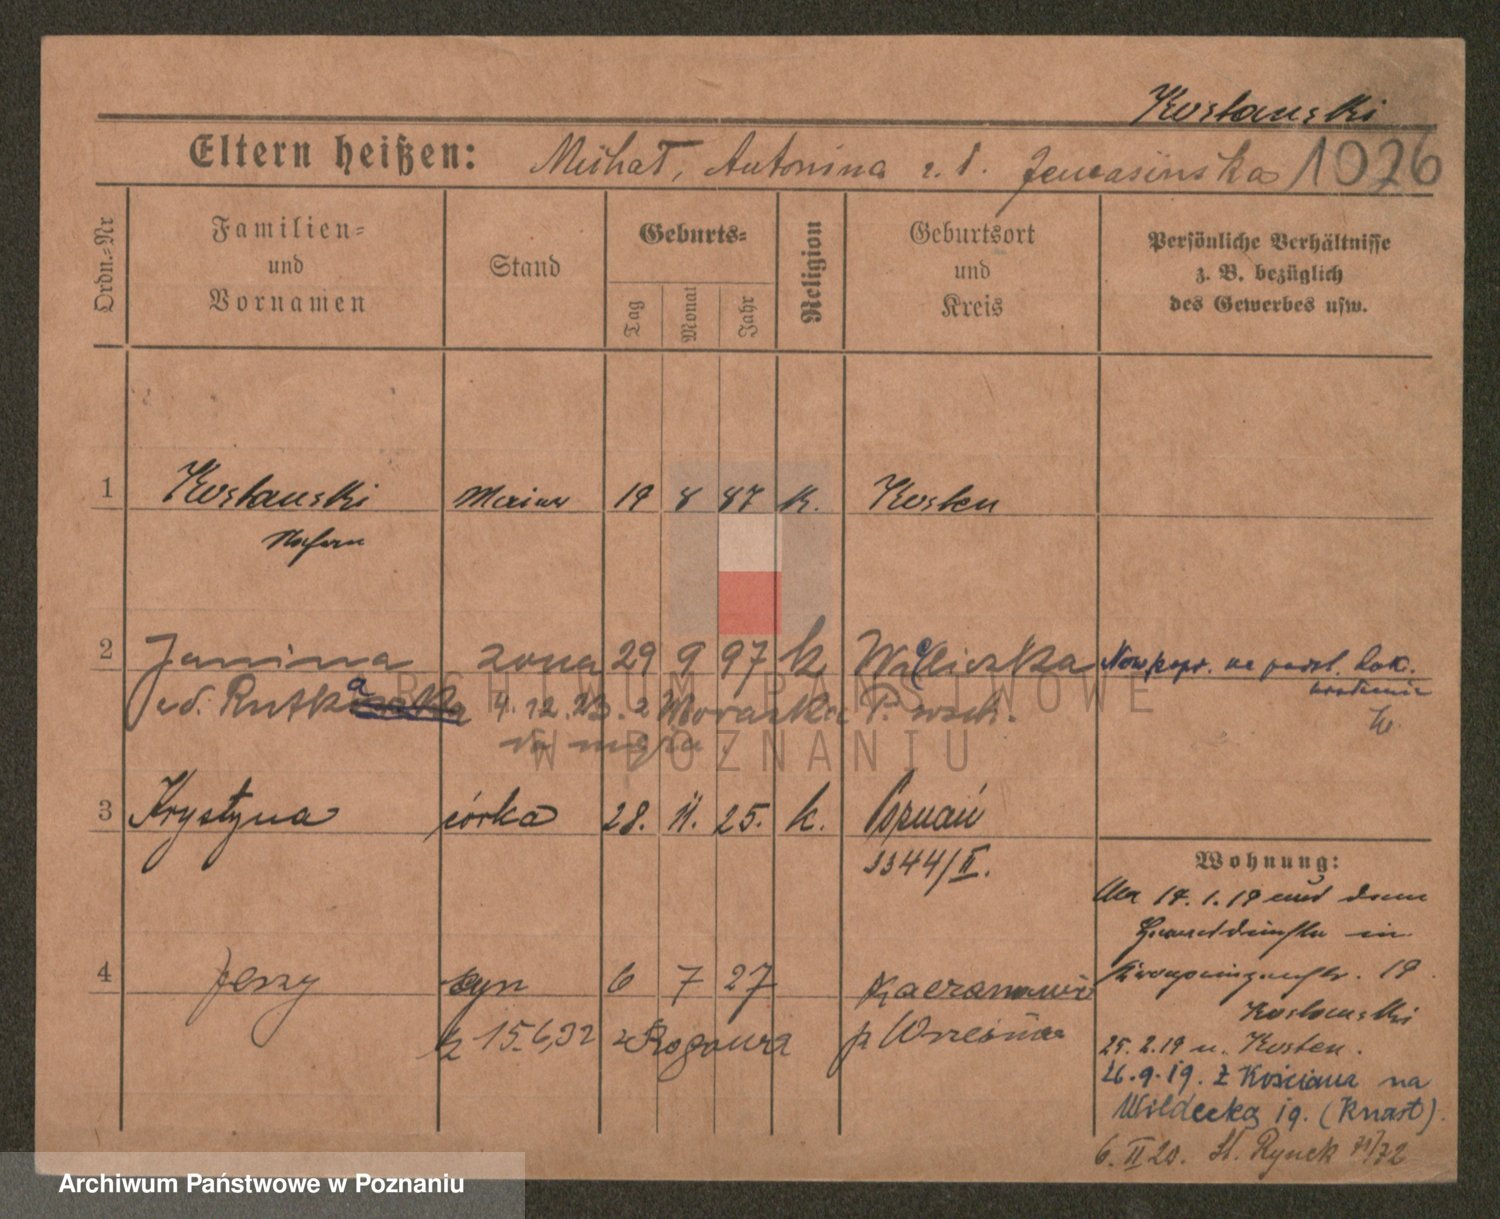 Kostanski
Eltern heißen: Michał, Antonina z. d. 1026
Ordn.=Nr
Familien=
und
Vornamen
Stand
Geburts=
Tag
Monat
Jahr
Religion
Geburtsort
und
Kreis
Persönliche Verhältnisse
z. B. bezüglich
des Gewerbes usw.
1 Kostanski 19 8 87 k. Kosten
Stefan
2 Janina żona 29 9 97 k Wieliczka na podst. dok.
ed. Rutka 4.12.23. z P. wsch.
do męża
3 Krystyna córka 28. 11. 25. k. Poznań
3344/II.
Wohnung:
14. 1. 19 und dann
in
19.
Kostanski
4 Jerzy syn 6 7 27
15.6.32 z Rogowa p Września
25. 2. 19 n. Kosten.
26. 9. 19. z Kościana na
Wildecką 19. (Knast).
6. II 20. St. Rynek 71/72
ARCHIWUM PAŃSTWOWE
W POZNANIU
Archiwum Państwowe w Poznaniu